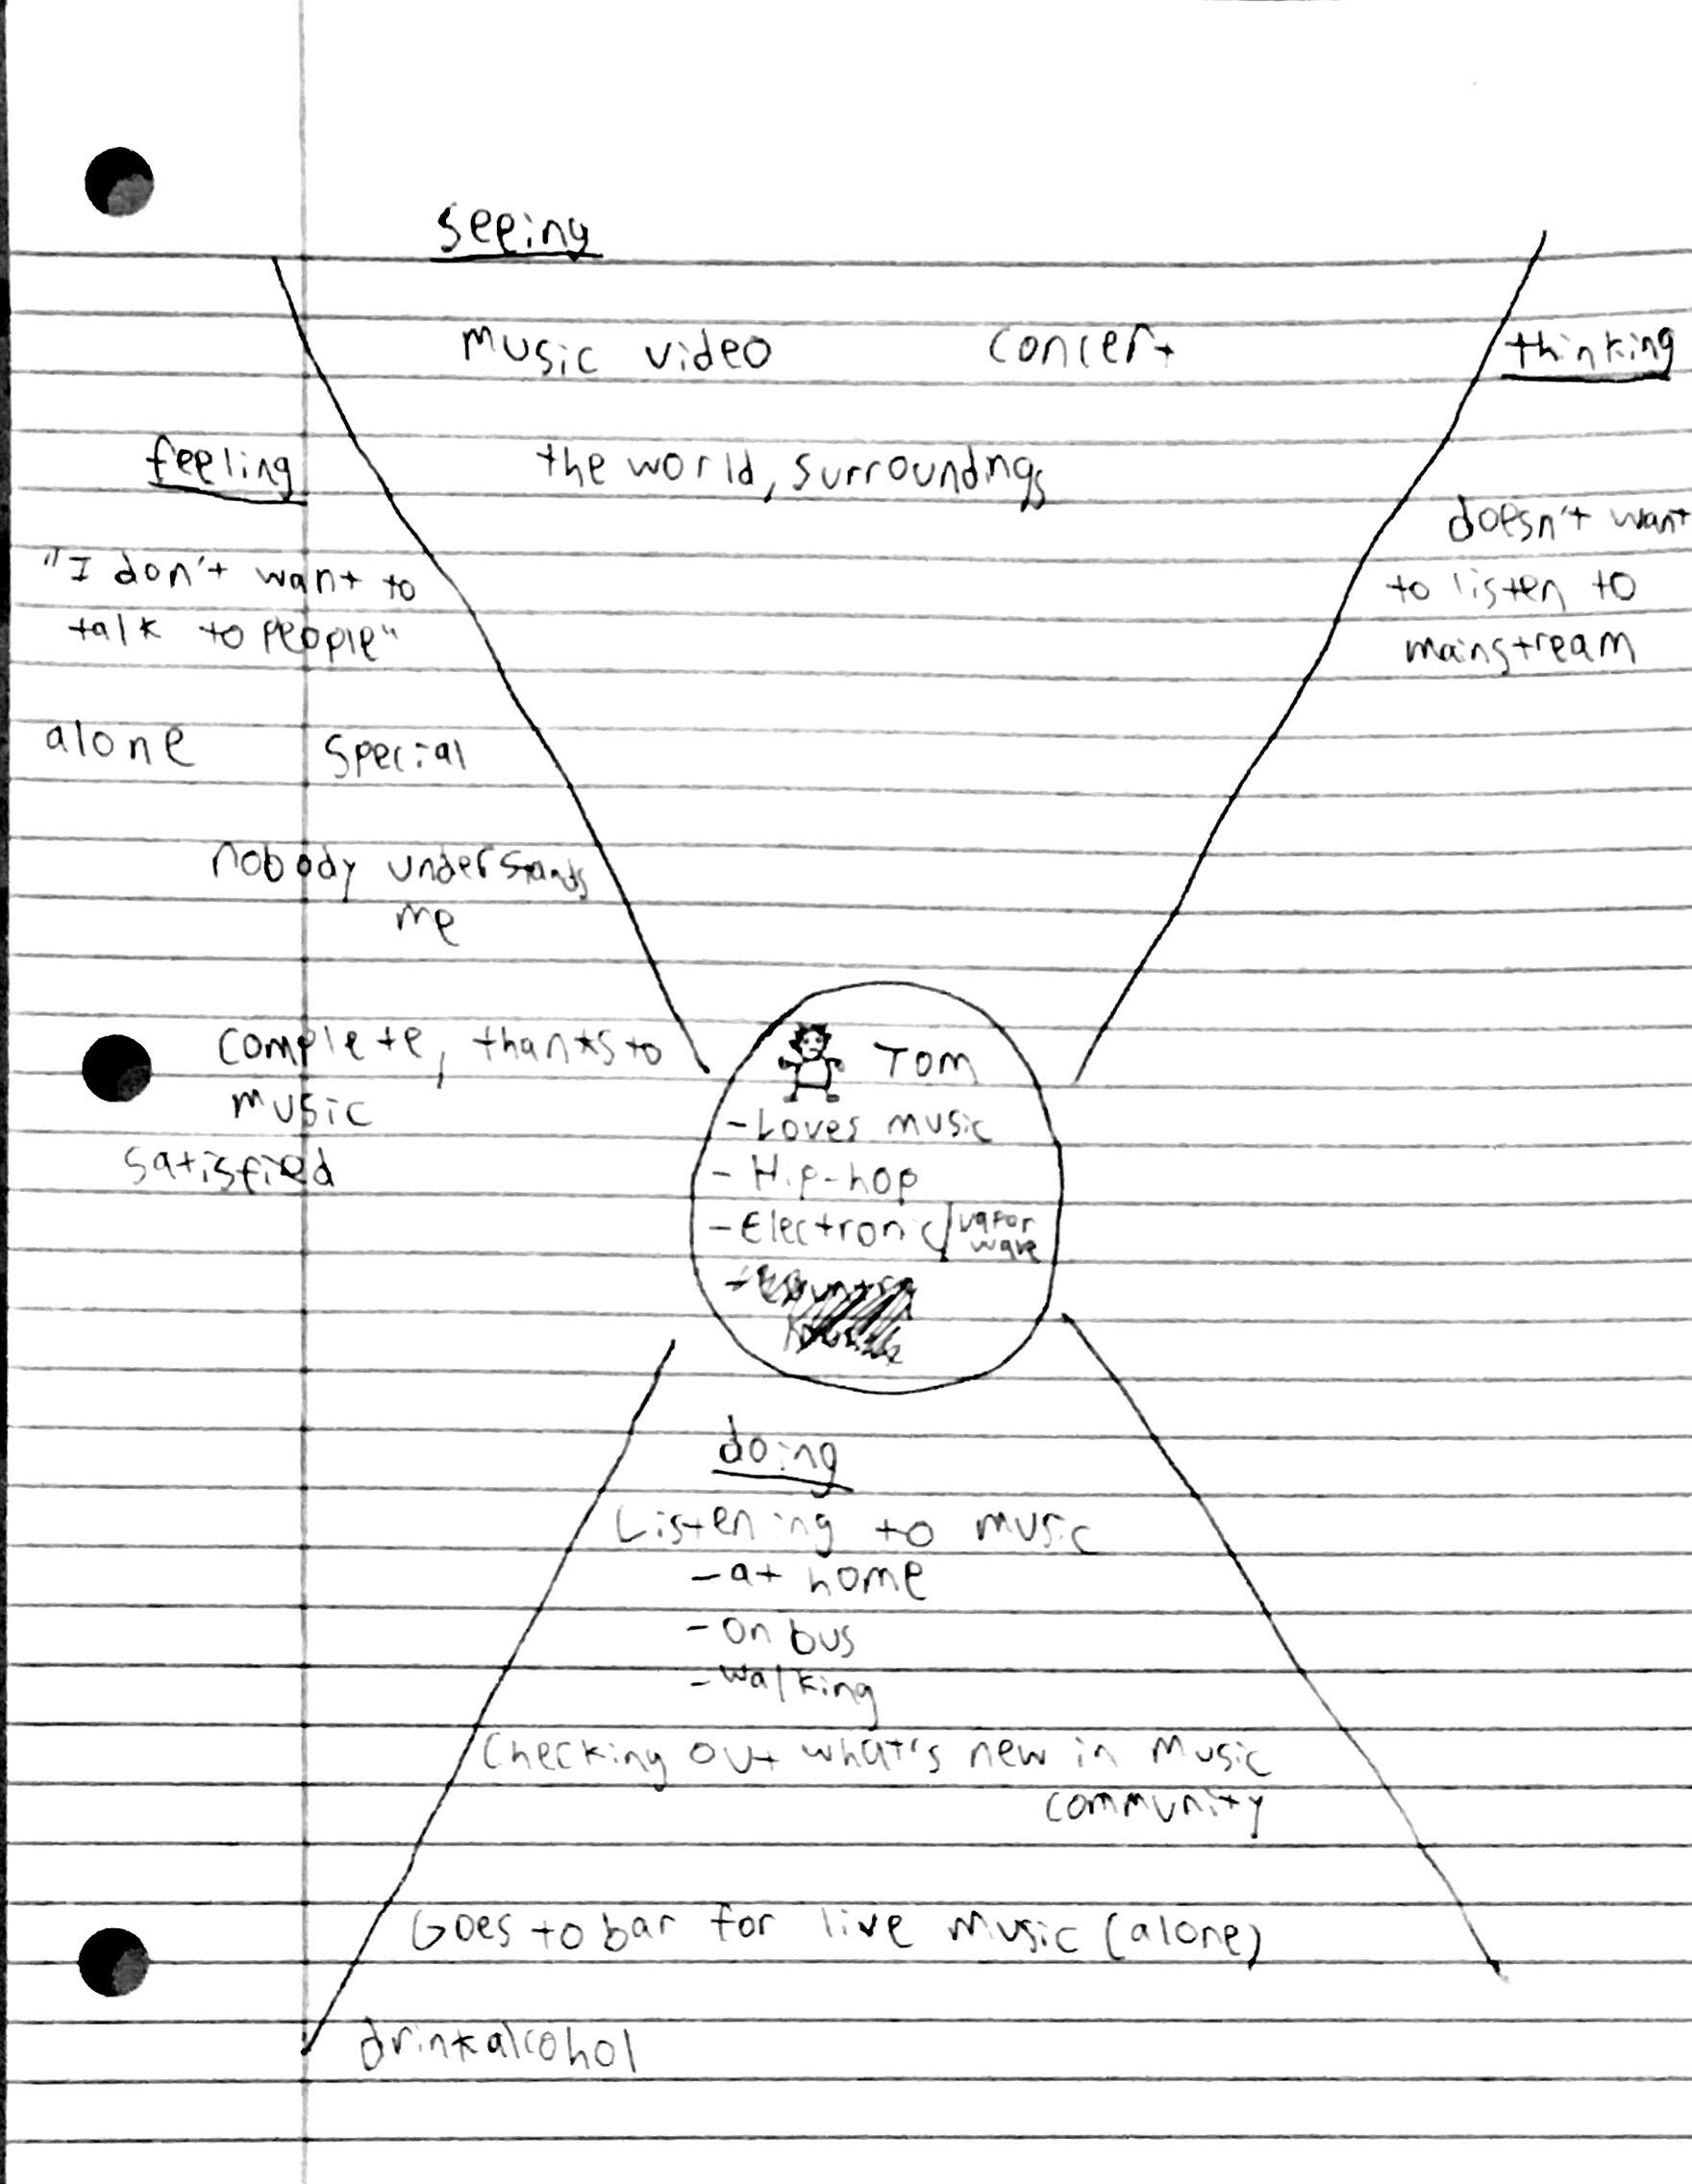 seeing
music video concert
the world, surroundings
thinking
doesn't want
to listen to
mainstream
feeling
"I don't want to
talk to people"
alone special
nobody understands
me
complete, thanks to
music
satisfied
Tom
- Loves music
- Hip-hop
- Electronic/vapor
wave
doing
Listening to music
- at home
- on bus
- walking
Checking out what's new in music
community
Goes to bar for live music (alone)
drink alcohol